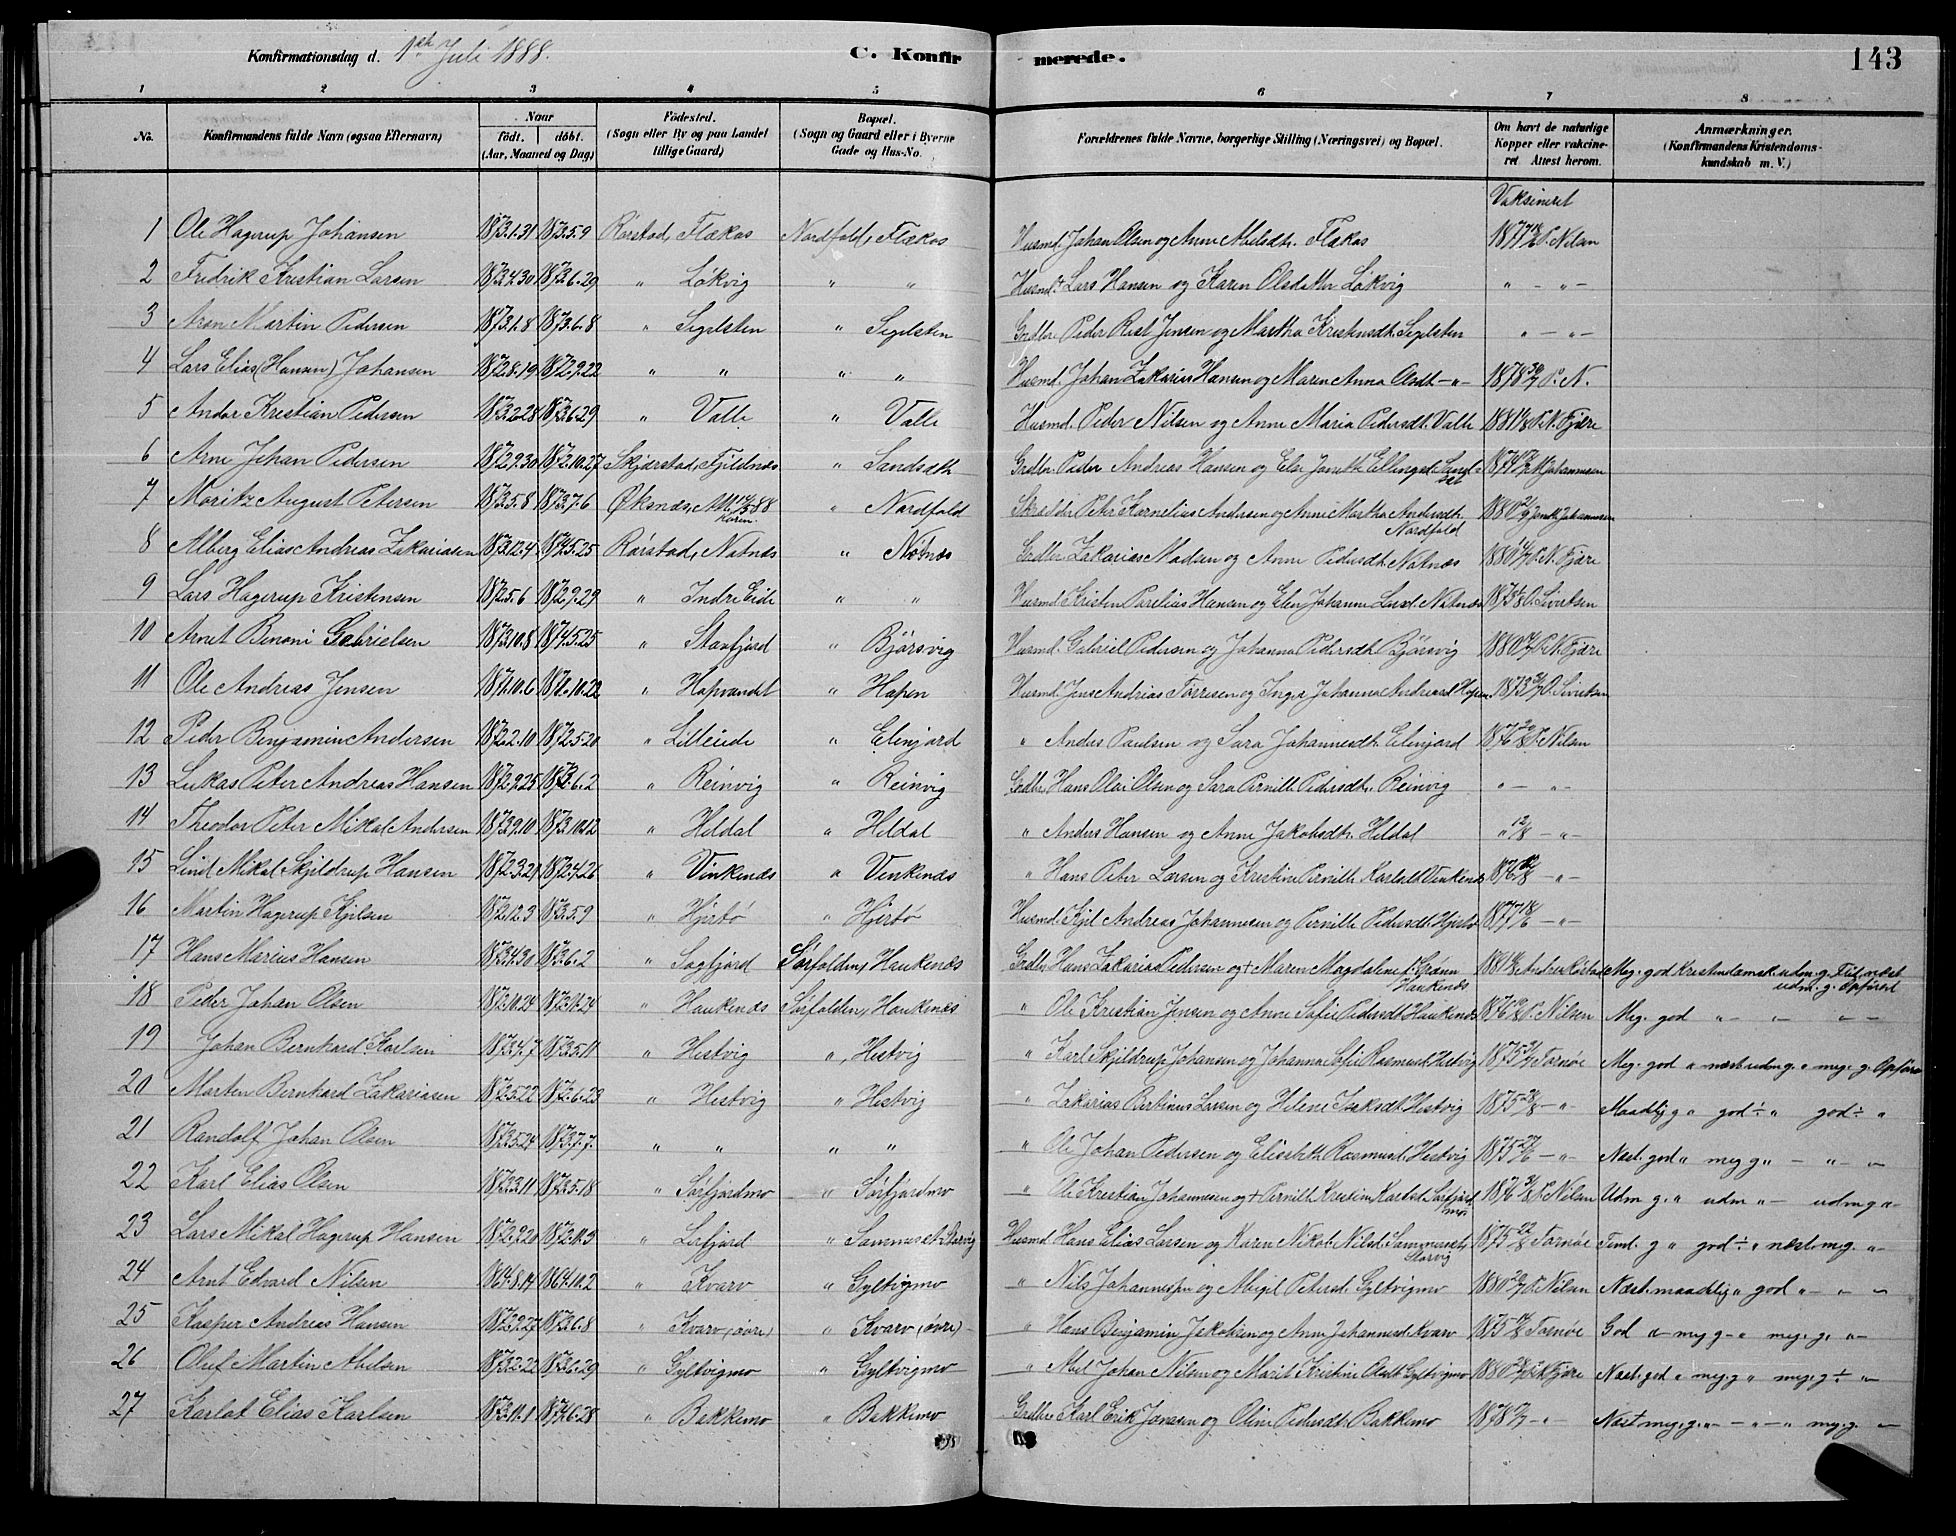 Konfirmationsdag d. 1ste Juli 1888.
C. Konfirmerede.
143
1 2 3 4 5 6 7 8
No. Konfirmandens fulde Navn (ogsaa Efternavn) Naar født. døbt. (Aar, Maaned og Dag) Fødested. (Sogn eller By og paa Landet tillige Gaard) Bopæl. (Sogn og Gaard eller i Byerne Gade og Hus-No. Forældrenes fulde Navne, borgerlige Stilling (Næringsvei) og Bopæl. Om havt de naturlige Kopper eller vakcineret. Attest herom. Anmærkninger. (Konfirmandens Kristendomskundskab m. V.)
Vaksineret
1 Ole Hagerup Johansen 1873.1.31 1873.5.9 Rørstad, Flækos Nordfold, Flækos Husmd. Johan Olsen og Anne Abelsdt. Flækos 1877 P. Nilsen
2 Fredrik Kristian Larsen 1873.4.30 1873.6.29 " Løkvig " " Husmd. Lars Hansen og Karen Olsdatter Løkvig " - " -
3 Aron Martin Pedersen 1873.1.8 1873.6.8 " Segelsten " Segelsten Grdbr. Peder Rist Jensen og Martha Kristensdt. Segelsten " - " -
4 Lars Elias (Hansen) Johansen 1872.8.19 1872.9.22 " " " " Husmd. Johan Zakarias Hansen og Maren Anna Olsdt. - " - 1878 P. N.
5 Andor Kristian Pedersen 1873.2.28 1873.6.29 " Valle " Valle Husmd. Peder Nilsen og Anne Maria Pedersdt. Valle 1881 P. N. Fjære
6 Arne Johan Pedersen 1872.9.30 1872.10.27 Skjærstad, Fjeldnæs " Sandsæth Grdbr. Peder Andreas Hansen og Elen Jonette Ellingsd. Sandset 1874 Johannesen
7 Moritz August Petersen 1873.5.8 1873.7.6 Øksnæs, Att. 88 " Nordfold Skrædder Peter Kornelius Andersen og Anne Martha Andersdt. Nordfold 1880 Johannesen
8 Alberg Elias Andreas Zakariasen 1873.12.4 1874.5.25 Rørstad, Nøtnæs " Nøtnæs Grdbr. Zakarias Madsen og Anne Pedersdt. Nøtnæs 1880 P. N. Fjære
9 Lars Hagerup Kristensen 1872.5.6 1872.9.29 " Indre Eide " " Husmd. Kristen Parelius Hansen og Elen Johanna Larsd. Nøtnæs 1873 O. Sivertsen
10 Arnt Benoni Gabrielsen 1873.10.8 1874.5.25 " Stavfjord " Bjørsvig Husmd. Gabriel Pedersen og Johanna Pedersdt. Bjørsvig 1880 P. N. Fjære
11 Ole Andreas Jensen 1871.10.6 1871.10.22 " Hopvandet " Hopen Husmd. Jens Andreas Torresen og Inger Johanna Andreasd. Hopen 1873 O. Sivertsen
12 Peder Benjamin Andersen 1872.2.10 1872.5.20 " Lilleeide " Elvnjord " Anders Paulsen og Sara Johannesdt. Elvnjord 1876 P. Nilsen
13 Lukas Peter Andreas Hansen 1872.9.25 1873.6.2 " Reinvig " Reinvig Grdbr. Hans Olai Olsen og Sara Pernille Pedersdt. Reinvig " - " -
14 Theodor Peter Mikal Andersen 1873.9.10 1873.10.12 " Heldal " Heldal " Anders Hansen og Anne Jakobsdt. Heldal " 12/8 - " -
15 Lind Mikal Skjeldrup Hansen 1872.3.21 1872.4.26 " Vinkenæs " Vinkenæs " Hans Peter Larsen og Kristine Pernille Karlsdt. Vinkenæs 1876 - " -
16 Martin Hagerup Kjelsen 1872.12.3 1873.5.9 " Hjertø " Hjertø Husmd. Kjel Andreas Johannesen og Pernille Pedersdt. Hjertø 1877 18/6 - " -
17 Hans Marius Hansen 1873.4.30 1873.6.2 " Sagfjord Sørfolden, Haukenæs Grdbr. Hans Zakarias Pedersen og + Maren Magdalene f. Grønn Haukenæs 1881 Andreas Røstad Meg. god Kristendomsk. udm. g. Flid næst udm. g. Opførsel
18 Peder Johan Olsen 1873.10.24 1873.11.24 " Haukenæs Sørfolden, Haukenæs " Ole Kristian Jensen og Anne Sofie Pedersdt. Haukenæs 1876 P. Nilsen Meg. god " - " - " -
19 Johan Bernhard Karlsen 1873.4.7 1873.5.11 " Hestvig " Hestvig " Karl Skjeldrup Johansen og Johanna Sofie Rasmusd. Hestvig 1875 Tornøe Meg. god " næst udm g. " meg. g. Opførs
20 Morten Bernhard Zakariasen 1872.5.22 1872.6.23 " Hestvig " Hestvig " Zakarias Bertinus Larsen og Helene Isaksdt. Hestvig 1875 28/8 - " Maadlig g " god ÷ " god ÷ "
21 Randolf Johan Olsen 1873.5.24 1873.7.7. " " " " " Ole Johan Pedersen og Elisabeth Rasmusd. Hestvig 1875 27/6 - " - Næst. god " meg g " - " - "
22 Karl Elias Olsen 1873.3.11 1873.5.18 " Sørfjordmo " Sørfjordmo " Ole Kristian Johannesen og + Pernille Kristine Karlsd. Sørfjordmo 1876 P. Nilsen Udm g. " udm " - udm g " -
23 Lars Mikal Hagerup Hansen 1872.9.20 1872.11.3 " Leifjord " Sommerset Storvig Husmd. Hans Elias Larsen og Karen Nikol. Nilsd. Sommerset Storvig 1875 22/8 Tornøe Teml. g " god ÷ " næst meg. " -
24 Arnt Edvard Nilsen 1864.8.14 1864.10.2 " Kvarv " Gyltvigmo " Nils Johannesen og Abigel Petersd. Gyltvigmo 1880 P. Nilsen Næst. maadelig " god " - " - "
25 Kasper Andreas Hansen 1872.9.27 1873.6.8 " Kvarv (øvre) " Kvarv (øvre) " Hans Benjamin Jakobsen og Anne Johannesd. Kvarv 1875 Tornøe God " - meg g - " meg. g. " -
26 Oluf Martin Abelsen 1873.2.22 1873.6.29 " Gyltvigmo " Gyltvigmo " Abel Johan Nilsen og Marit Kristine Olsdt. Gyltvigmo 1880 P. N. Fjære Næst. god " meg. g " meg. g ÷ "
27 Karlot Elias Karlsen 1873.11.1 1874.6.28 " Bakkemo " Bakkemo Grdbr. Karl Erik Jonasen og Oline Pedersdt. Bakkemo 1878 - " Næst meg. g. " - " - " meg. g. "